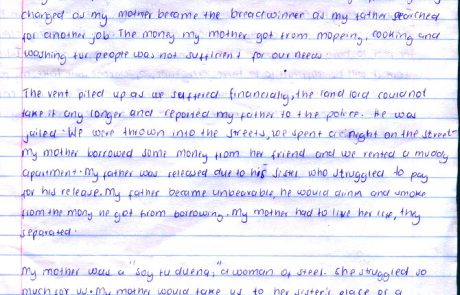 changed as my mother became the breadwinner as my father searched
for another job. The money my mother got from mopeing, cooking and
washing for people was not sufficient for our needs.
The rent piled up as we suffered financially, the land lord could not
take it any longer and reported my father to the police. He was
jailed. We were thrown into the streets, we spent a night on the street
my mother borrowed some money from her friend and we rented a muddy
apartment. My father was released due to his sister who struggled to pay
for his release. My father became unbearable, he would drink and smoke
from the mony he got from borrowing. My mother had to live her life, they
separated.
My mother was a "soy tu duena," a woman of steel. She struggled so
much for us. My mother would take us to her sister's place or a